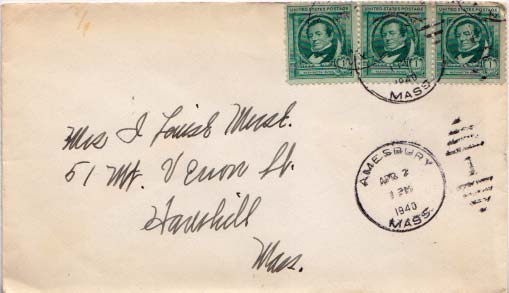 UNITED STATES POSTAGE UNITED STATES POSTAGE UNITED STATES POSTAGE
1¢ 1¢ 1¢
1940
MASS.
Mrs I Louise
51 Mt. Vernon St.
Haverhill
Mass.
AMESBURY
APR 2
1 PM
1940
MASS.
1